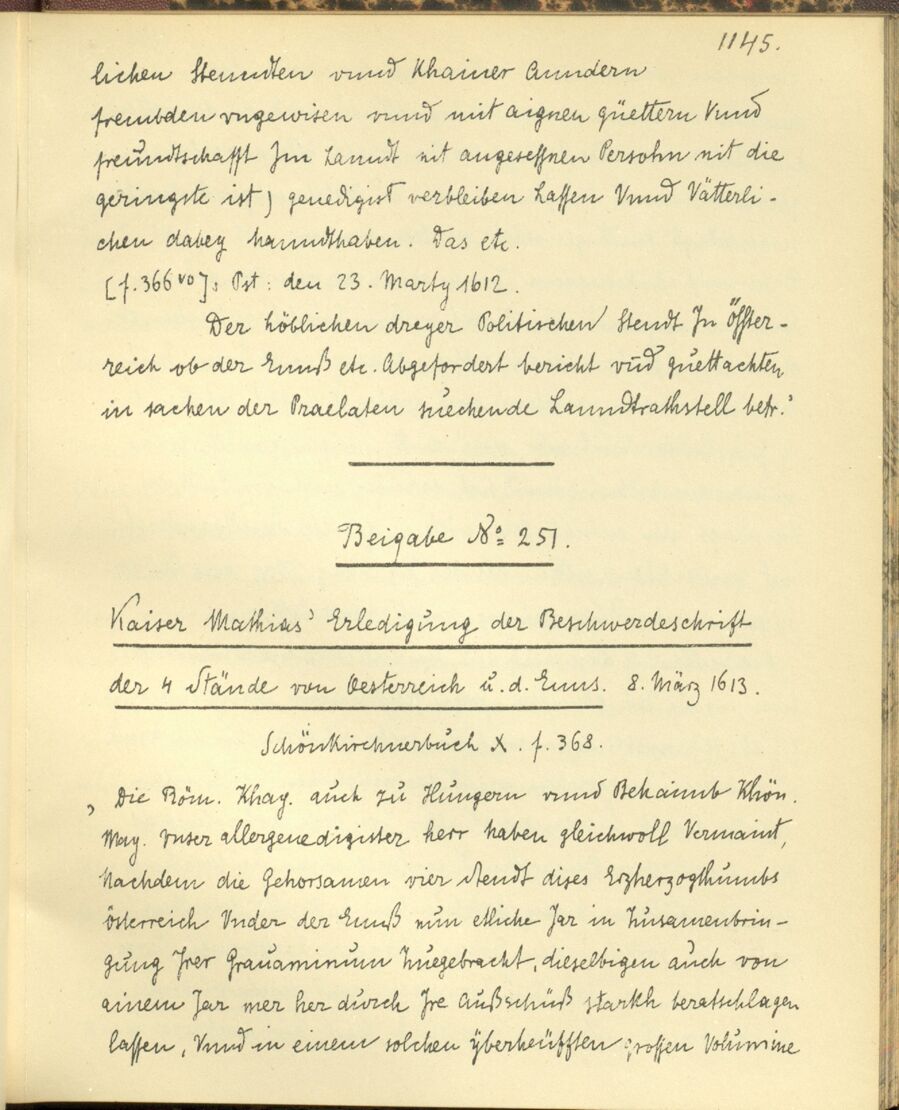 1145.
lichen Stenndten vnnd Khainer Anndern
frembden vngewisen vnnd mit aignen güettern Vnnd
freundtschafft Im Lanndt nit angesessnen Persohn nit die
geringste ist) genedigist verbleiben Lassen Vnnd Vätterli-
chen dabey hanndthaben. Das etc.
[f. 366 vo]. Pst: den 23. Marty 1612.
Der höblichen dreyer Politischen Stendt In Össter-
reich ob der Ennß etc. Abgefordert bericht vnd guettachten
in sachen der Praelaten suechende Lanndtrathstell betr.'
Beigabe No 251.
Kaiser Mathias' Erledigung der Beschwerdeschrift
der 4 Stände von Oesterreich u. d. Enns. 8. März 1613.
Schönkirchnerbuch X. f. 368.
, Die Röm. Khay. auch zu Hungern vnnd Behaimb Khön.
May. vnser allergenedigister herr haben gleichwoll Vermaint,
Nachdem die Gehorsamen vier Stendt dises Erzherzogthumbs
österreich Vnder der Ennß nun etliche Jar in Zusamenbrin-
gung Irer Grauaminum Zuegebracht, dieselbigen auch von
ainem Jar mer her durch Ire Außschüß starkh beratschlagen
lassen, Vnnd in einem solchen überheüfften grossen Volumine